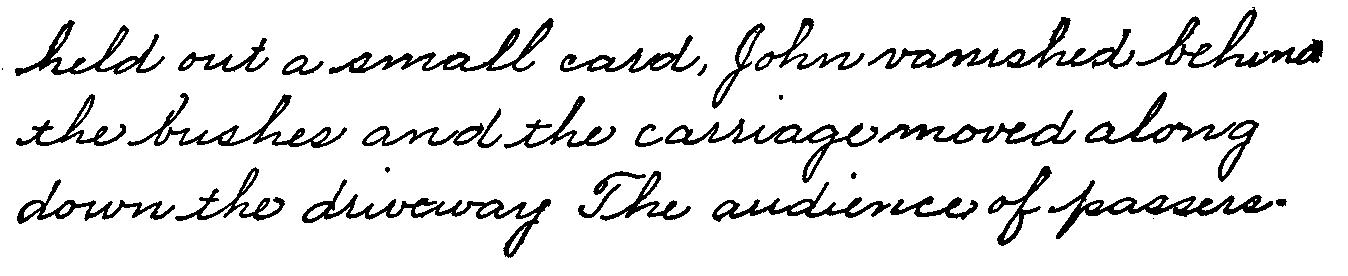 held out a small card, John vanished behind
the bushes and the carriage moved along
down the driveway The audience of passers-